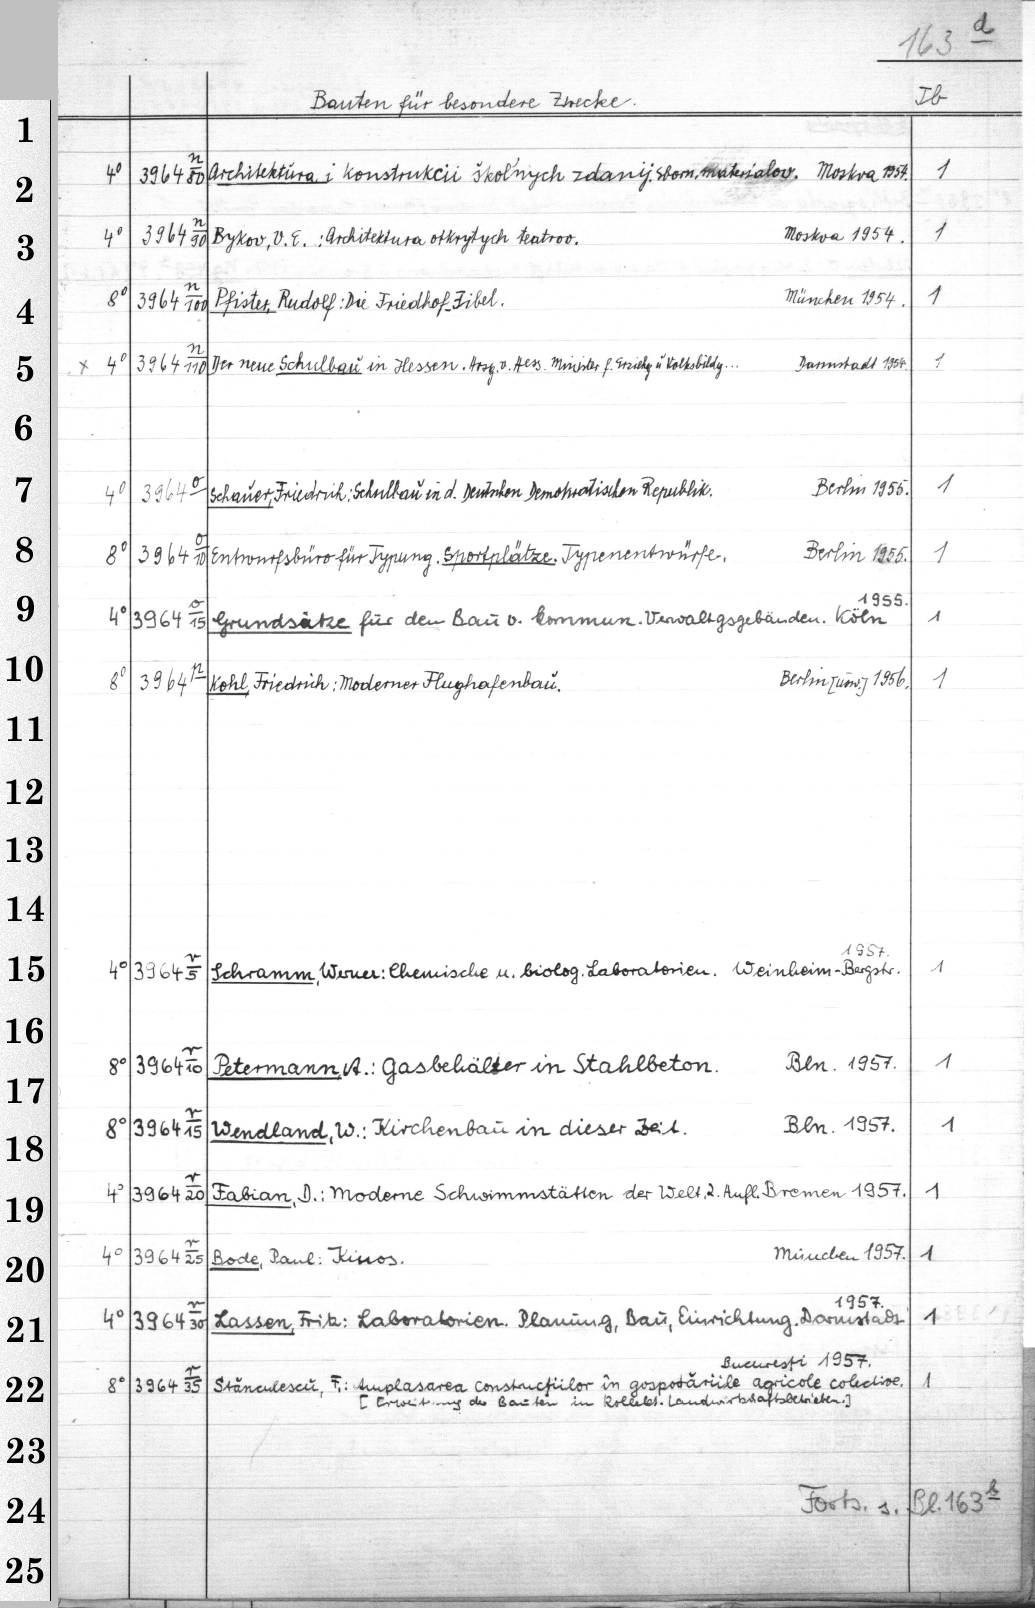 163 d
Bauten für besondere Zwecke. Ib
1
2 4° 3964 n/80 Architektura i konstrukcii škol'nych zdanij. Sborn. materialov. Moskva 1954. 1
3 4° 3964 n/90 Bykov, V. E.: Architektura otkrytych teatrov. Moskva 1954. 1
4 8° 3964 n/100 Pfister, Rudolf: Die Friedhof-Fibel. München 1954. 1
5 x 4° 3964 n/110 Der neue Schulbau in Hessen. Hrsg. v. Hess. Minister f. Erziehg u Volksbildg... Darmstadt 1954. 1
6
7 4° 3964 o Schauer, Friedrich: Schulbau in d. Deutschen Demokratischen Republik. Berlin 1955. 1
8 8° 3964 o/10 Entwurfsbüro für Typung. Sportplätze. Typenentwürfe. Berlin 1955. 1
1955.
9 4° 3964 o/15 Grundsätze für den Bau v. kommun. Verwaltgsgebäuden. Köln 1
10 8° 3964 p Kohl, Friedrich: Moderner Flughafenbau. Berlin [usw.] 1956. 1
11
12
13
14
1957.
15 4° 3964 r/5 Schramm, Werner: Chemische u. biolog. Laboratorien. Weinheim-Bergstr. 1
16
17 8° 3964 r/10 Petermann, A.: Gasbehälter in Stahlbeton. Bln. 1957. 1
18 8° 3964 r/15 Wendland, W.: Kirchenbau in dieser Zeit. Bln. 1957. 1
19 4° 3964 r/20 Fabian, D.: Moderne Schwimmstätten der Welt. 2. Aufl. Bremen 1957. 1
20 4° 3964 r/25 Bode, Paul: Kinos. München 1957. 1
1957.
21 4° 3964 r/30 Lassen, Fritz: Laboratorien. Planung, Bau, Einrichtung. Darmstadt 1
București 1957.
22 8° 3964 r/35 Stănculescu, F.: Amplasarea construcțiilor în gospodăriile agricole colective. 1
der Bauten in kollekt. Landwirtschaftsbetrieben.]
23
24 Forts. s. Bl. 163 b
25